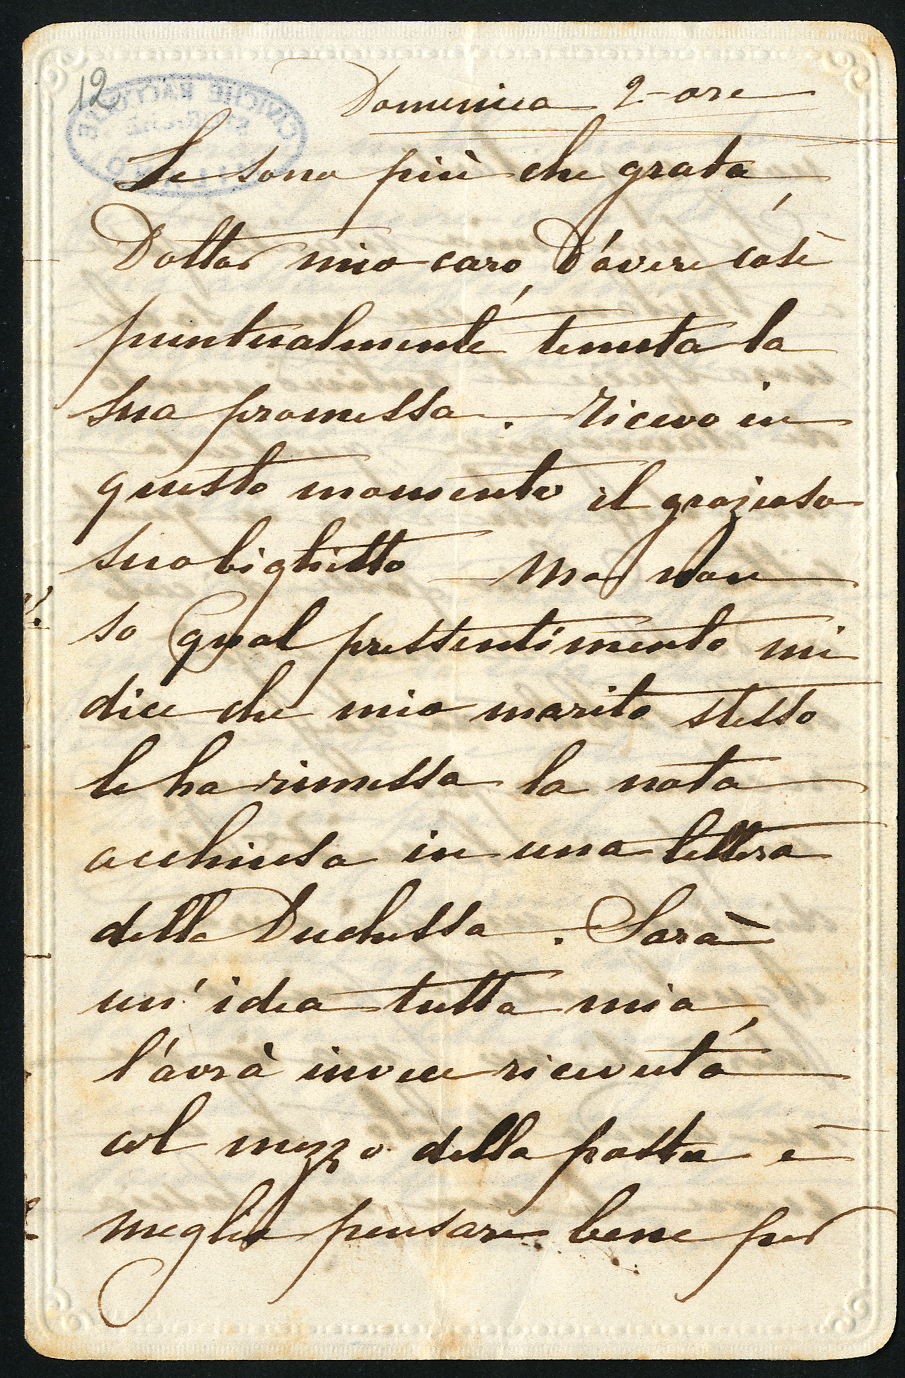 12
Domenica 2 ore
Le sono più che grata,
Dottor mio caro, D'avere così
puntualmente tenuta la
sua promessa. Ricevo in
questo momento il grazioso
suo biglietto — Ma non
so qual pressentimento mi
dice che mio marito stesso
le ha rimessa la nota
acchiusa in una lettera
della Duchessa. Sarà
un'idea tutta mia,
l'avrà invece ricevuta
col mezzo della posta è
meglio pensare bene per